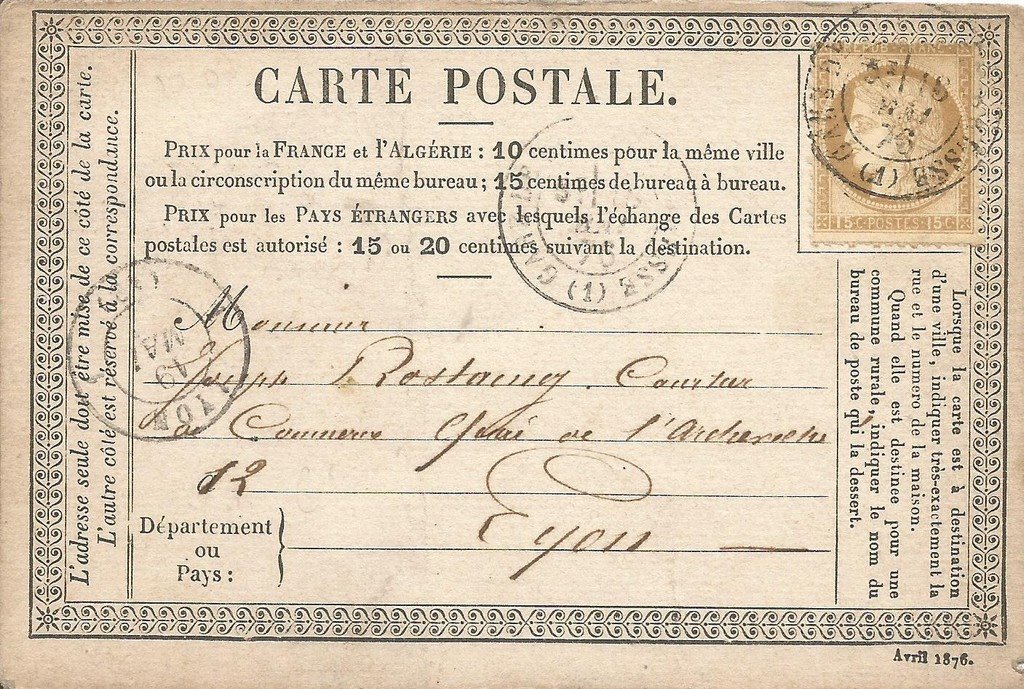 CARTE POSTALE.
PRIX pour la FRANCE et l'ALGÉRIE : 10 centimes pour la même ville
ou la circonscription du même bureau ; 15 centimes de bureau à bureau.
PRIX pour les PAYS ÉTRANGERS avec lesquels l'échange des Cartes
postales est autorisé : 15 ou 20 centimes suivant la destination.
REPUB. FRANC.
15 C. POSTES 15 C.
MAI
76
(1)
(1)
19
MAI
LYON
L'adresse seule doit être mise de ce côté de la carte.
L'autre côté est réservé à la correspondance.
Monsieur
Joseph Rostaing Courtier
de Commerce Quai de l'Archevêché
12
Lyon
Département
ou
Pays :
Lorsque la carte est à destination
d'une ville, indiquer très-exactement la
rue et le numero de la maison.
Quand elle est destinée pour une
commune rurale, indiquer le nom du
bureau de poste qui la dessert.
Avril 1876.